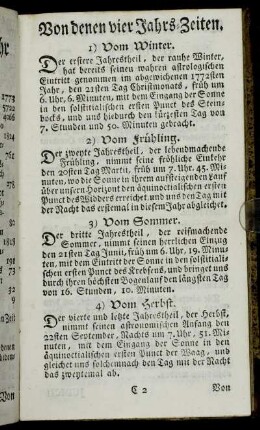 Von denen vier Jahrs-Zeiten.
1) Vom Winter.
Der erstere Jahrestheil, der rauhe Winter,
hat bereits seinen wahren astrologischen
Eintritt genommen im abgewichenen 1772sten
Jahr, den 21sten Tag Christmonats, früh um
6. Uhr, 6. Minuten, mit dem Eingang der Sonne
in den solstitialischen ersten Punct des Stein-
bocks, und uns hiedurch den kürzesten Tag von
7. Stunden und 50. Minuten gebracht.
2) Vom Frühling.
Der zweyte Jahrestheil, der lebendmachende
Frühling, nimmt seine fröhliche Einkehr
den 20sten Tag Martii, früh um 7. Uhr, 45. Mi-
nuten, wo die Sonne in ihrem aufsteigenden Lauf
über unsern Horizont den äquinoctialischen ersten
Punct des Widders erreichet, und uns den Tag mit
der Nacht das erstemal in diesem Jahr abgleichet.
3) Vom Sommer.
Der dritte Jahrestheil, der reifmachende
Sommer, nimmt seinen herrlichen Einzug
den 21sten Tag Junii, früh um 6. Uhr, 19. Minu-
ten, mit dem Eintritt der Sonne in den solstitiali-
schen ersten Punct des Krebsens, und bringet uns
durch ihren höchsten Bogenlauf den längsten Tag
von 16. Stunden, 10. Minuten.
4) Vom Herbst.
Der vierte und letzte Jahrestheil, der Herbst,
nimmt seinen astronomischen Anfang den
22sten September, Nachts um 7. Uhr, 51. Mi-
nuten, mit dem Eingang der Sonne in den
äquinoctialischen ersten Punct der Waag, und
gleichet uns solchemnach den Tag mit der Nacht
das zweytemal ab.
C 2
Von